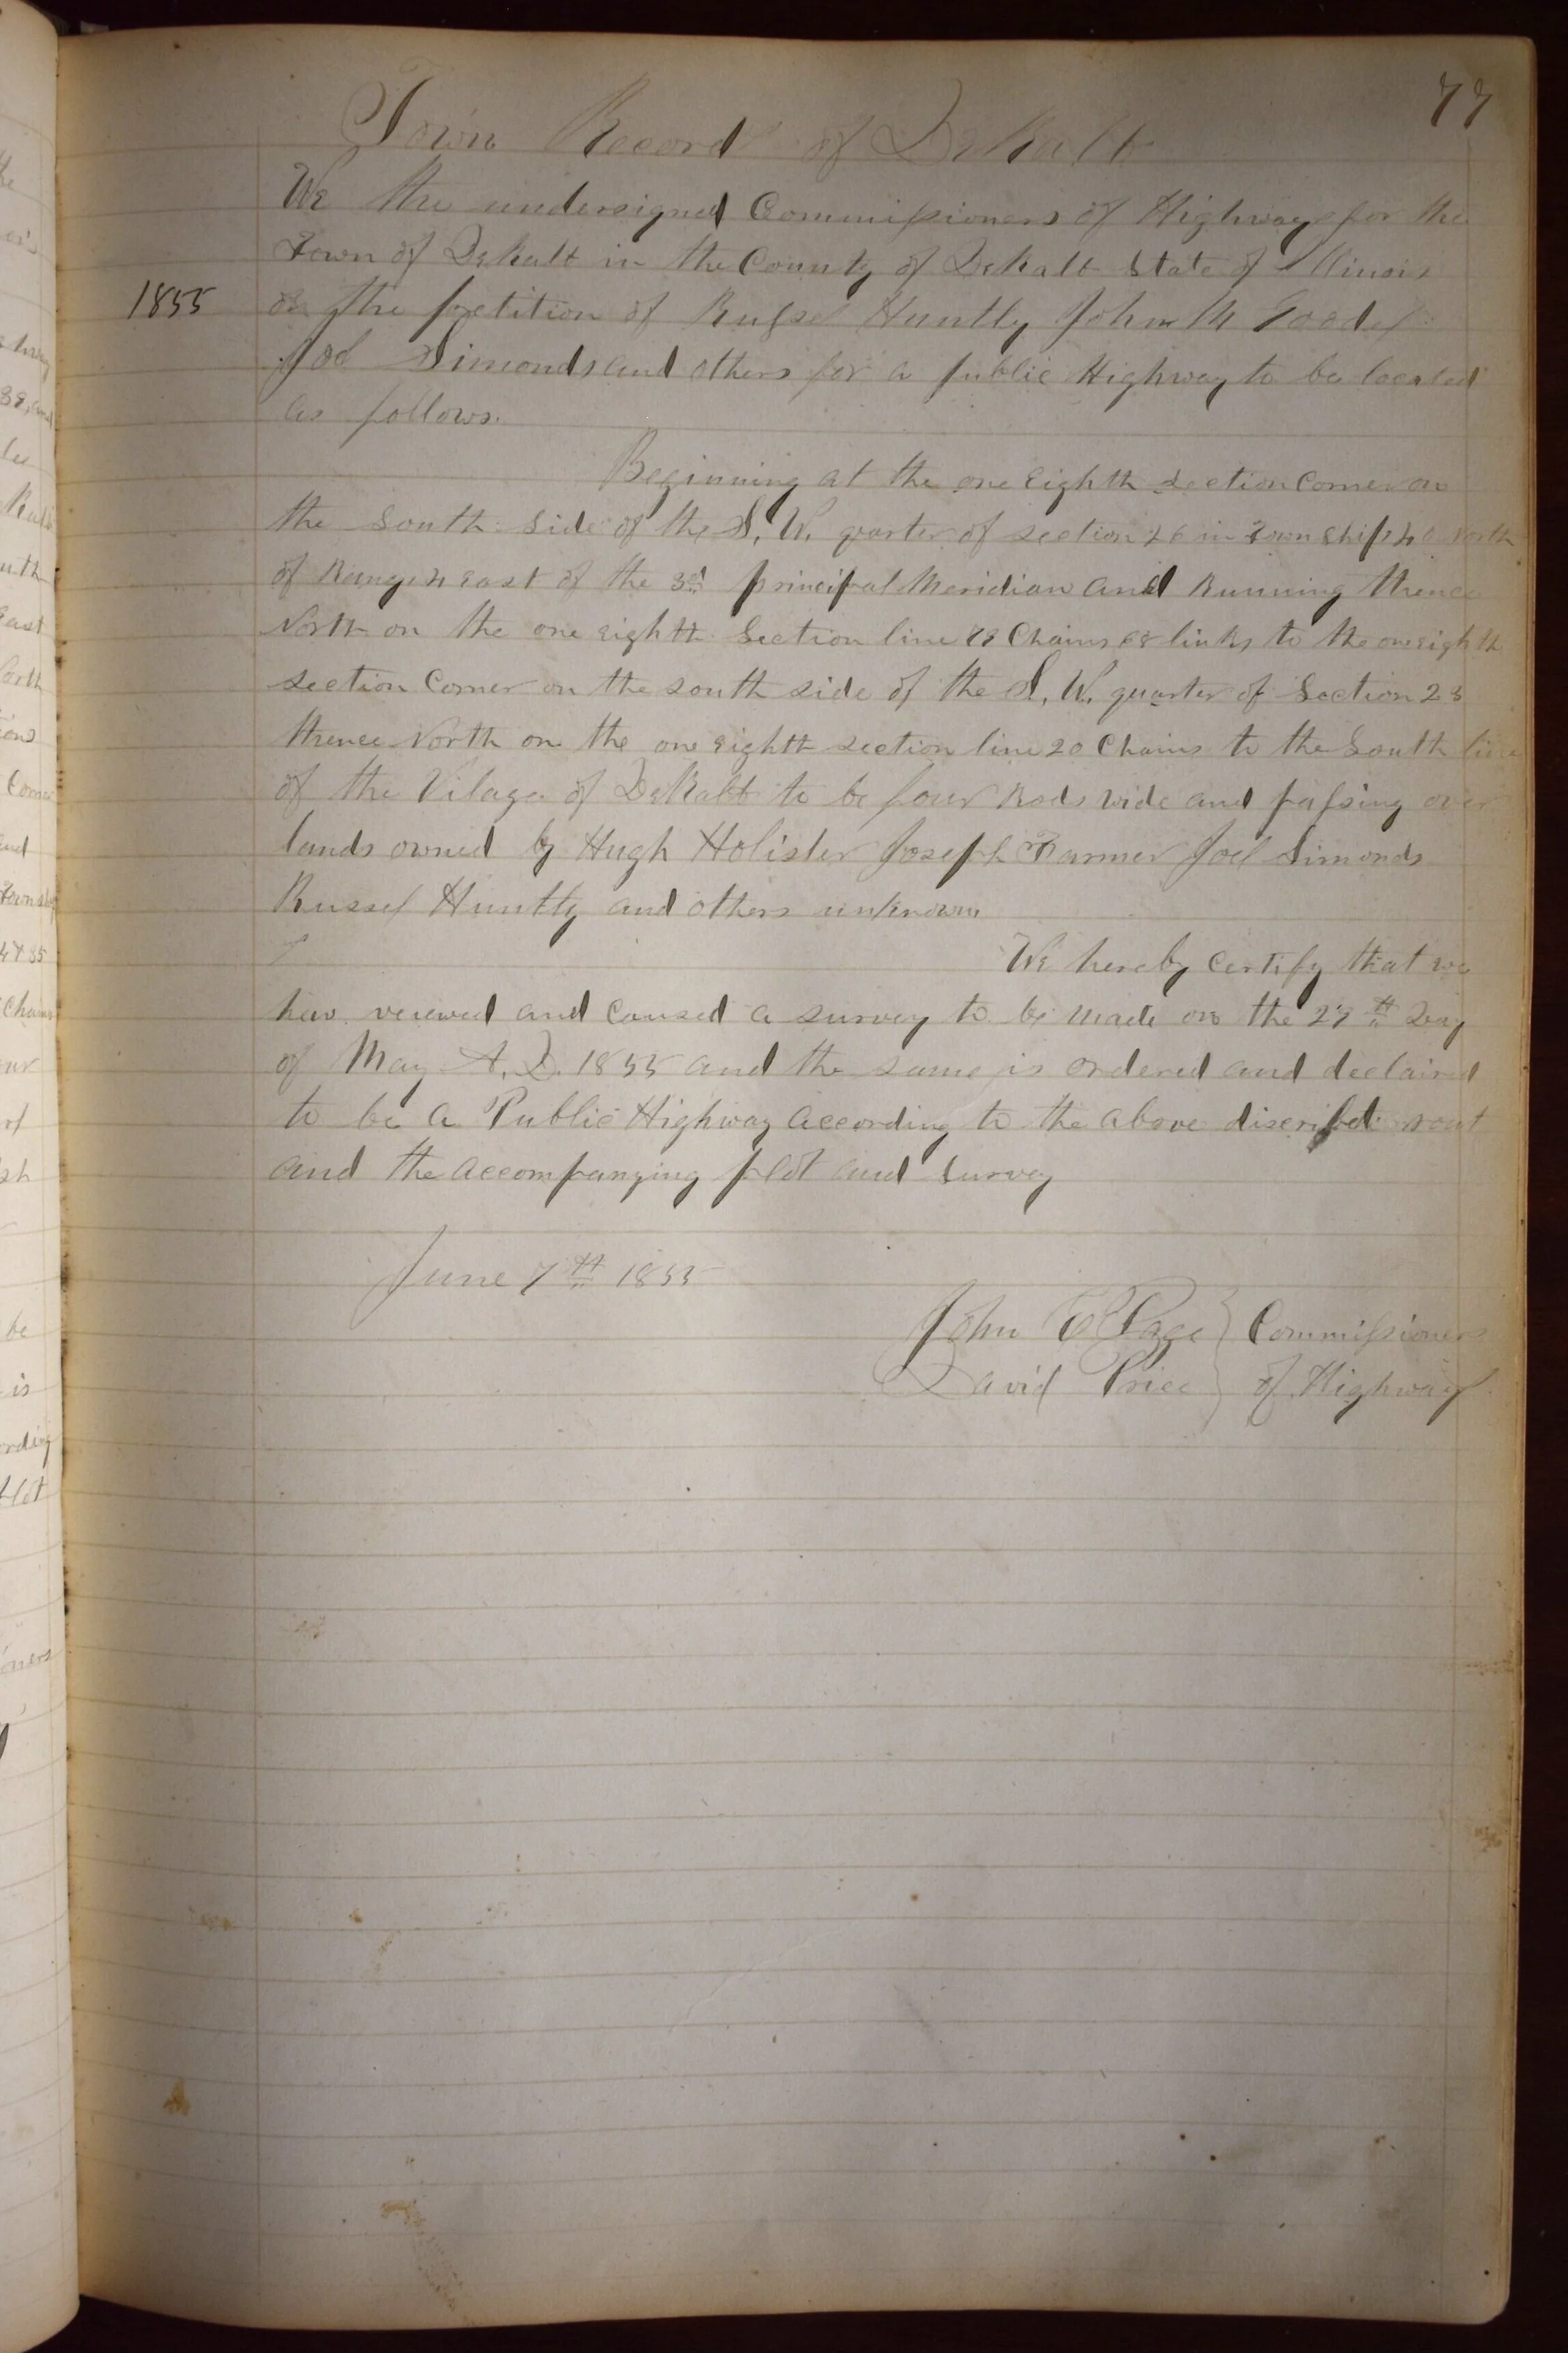 77
Town Record of DeKalb
We the undersigned Commissioners of Highways for the
Town of DeKalb in the County of DeKalb State of Illinois
1855 on the petition of Russel Huntly John M Goodel
Joel Simonds and others for a public Highway to be located
as follows.
Beginning at the one eighth section corner on
the South Side of the S. W. quarter of section 26 in Township 40 North
of Range 4 East of the 3rd principal Meridian and Running thence
North on the one eighth Section line 78 Chains 68 links to the one eighth
section corner on the south side of the S. W. quarter of Section 23
thence North on the one eighth section line 20 Chains to the South line
of the Vilage of DeKalb to be four Rods wide and passing over
lands owned by Hugh Holister Joseph Farmer Joel Simonds
Russel Huntly and others unknown
We hereby Certify that we
hav vewed and Caused a survey to be made on the 27th Day
of May A. D. 1855 and the same is ordered and declaired
to be a Public Highway according to the above discribd rout
and the accompanying plot and Survey
June 7th 1855
John E Page } Commissioners
David Price } of Highways